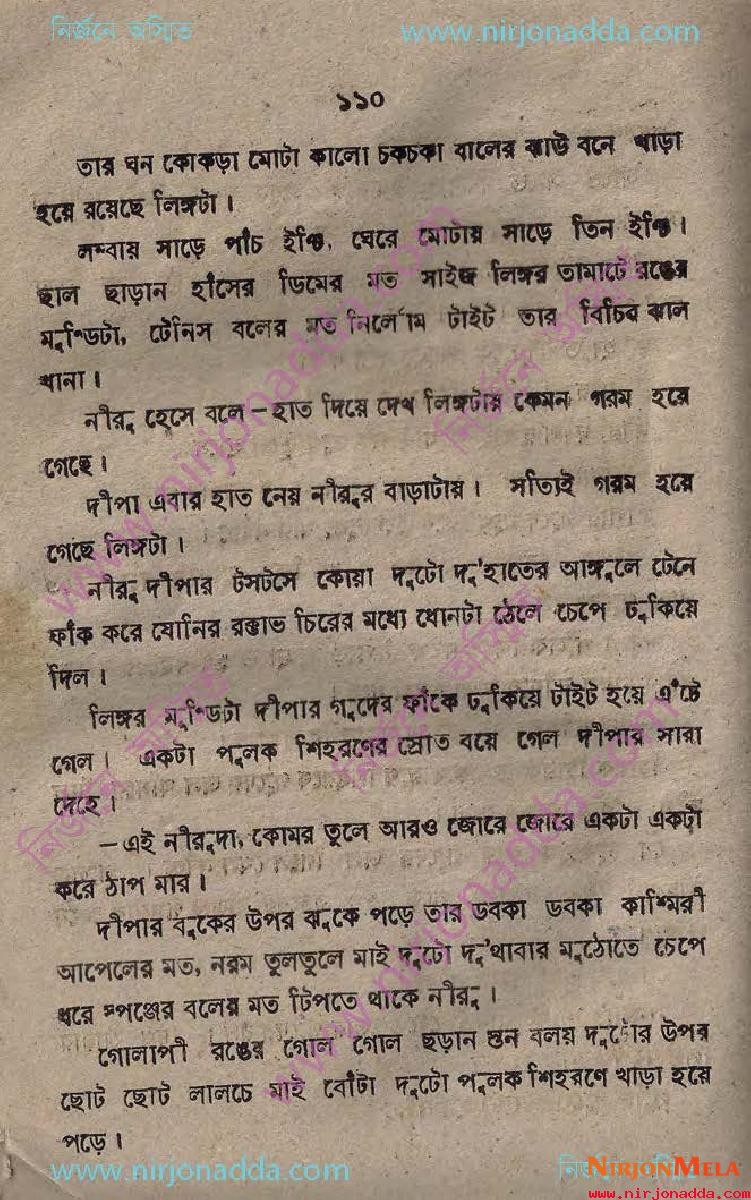 নির্জনে অস্মিত www.nirjonadda.com
১১০
তার ঘন কোকড়া মোটা কালো চকচকা বালের ঝাউ বনে খাড়া
হয়ে রয়েছে লিঙ্গটা।
লম্বায় সাড়ে পাঁচ ইঞ্চি, ঘেরে মোটায় সাড়ে তিন ইঞ্চি।
ছাল ছাড়ান হাঁসের ডিমের মত সাইজ লিঙ্গর তামাটে রঙের
মুণ্ডিটা, টেনিস বলের মত নির্লোম টাইট তার বিচির ঝাল
খানা।
নীরু হেসে বলে – হাত দিয়ে দেখ লিঙ্গটায় কেমন গরম হয়ে
গেছে।
দীপা এবার হাত নেয় নীরুর বাড়াটায়। সত্যিই গরম হয়ে
গেছে লিঙ্গটা।
নীরু দীপার টসটসে কোয়া দুটো দু'হাতের আঙ্গুলে টেনে
ফাঁক করে যোনির রক্তাভ চিরের মধ্যে ধোনটা ঠেলে চেপে ঢুকিয়ে
দিল।
লিঙ্গর মুণ্ডিটা দীপার গুদের ফাঁকে ঢুকিয়ে টাইট হয়ে এঁটে
গেল। একটা পুলক শিহরণের স্রোত বয়ে গেল দীপার সারা
দেহে।
– এই নীরুদা, কোমর তুলে আরও জোরে জোরে একটা একটা
করে ঠাপ মার।
দীপার বুকের উপর ঝুকে পড়ে তার ডবকা ডবকা কাশ্মিরী
আপেলের মত, নরম তুলতুলে মাই দুটো দু'থাবার মুঠোতে চেপে
ধরে স্পঞ্জের বলের মত টিপতে থাকে নীরু।
গোলাপী রঙের গোল গোল ছড়ান স্তন বলয় দুটোর উপর
ছোট ছোট লালচে মাই বোঁটা দুটো পুলক শিহরণে খাড়া হয়ে
পড়ে।
www.nirjonadda.com নির্জনে
NIRJONMELA
www.nirjonadda.com